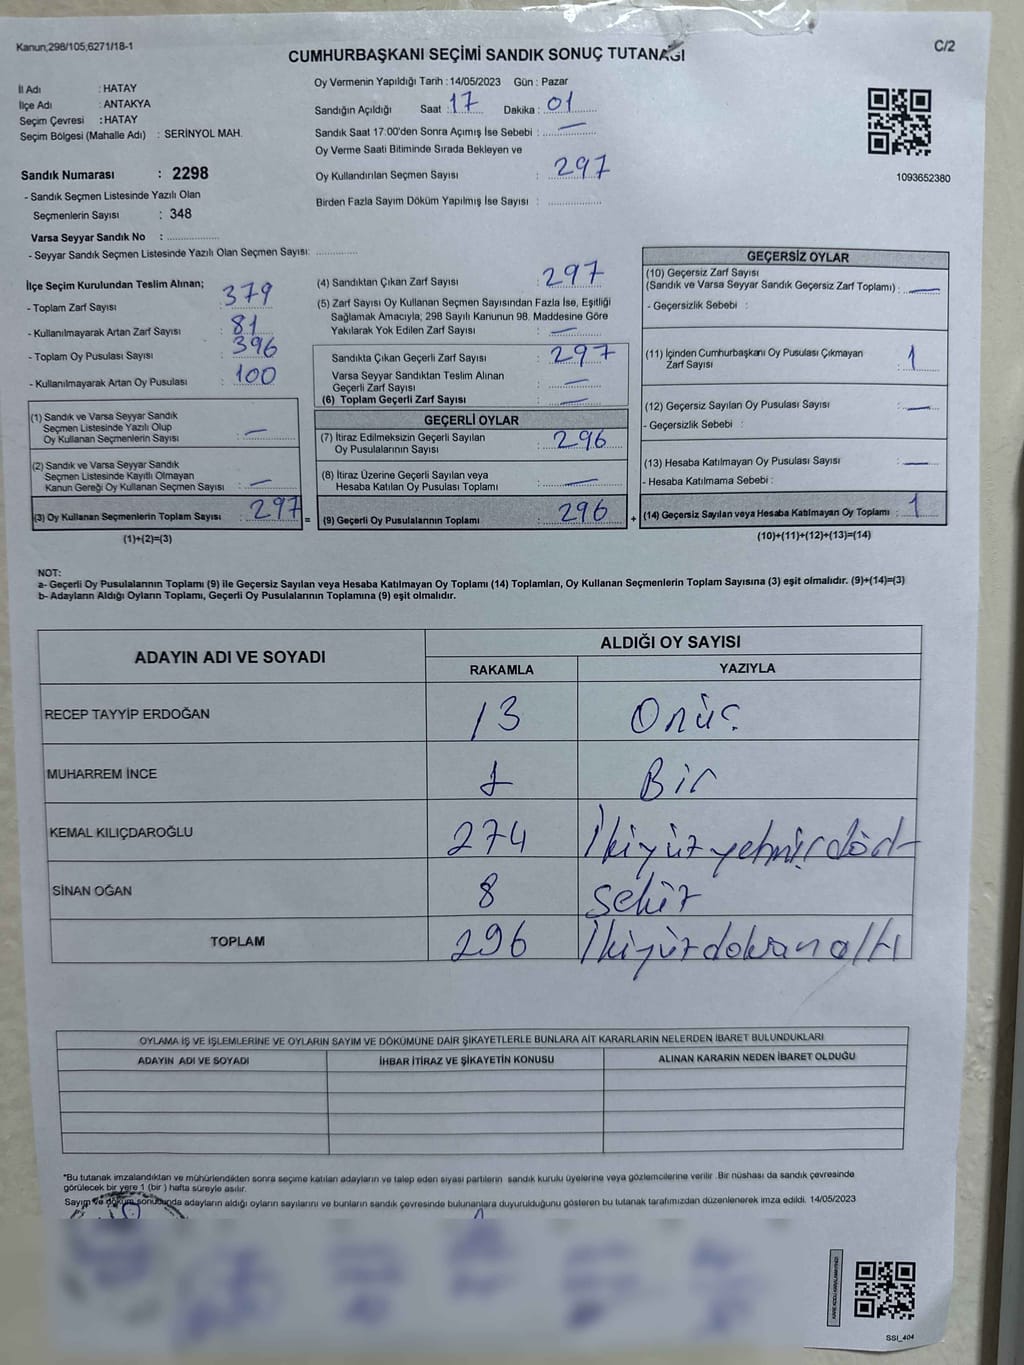 Kanun;298/105,6271/18-1
C/2
CUMHURBAŞKANI SEÇİMİ SANDIK SONUÇ TUTANAĞI
İl Adı : HATAY
İlçe Adı : ANTAKYA
Seçim Çevresi : HATAY
Seçim Bölgesi (Mahalle Adı) : SERİNYOL MAH.
Sandık Numarası : 2298
- Sandık Seçmen Listesinde Yazılı Olan
Seçmenlerin Sayısı : 348
Varsa Seyyar Sandık No : ..................
- Seyyar Sandık Seçmen Listesinde Yazılı Olan Seçmen Sayısı: ..............
Oy Vermenin Yapıldığı Tarih : 14/05/2023 Gün : Pazar
Sandığın Açıldığı Saat : 17 Dakika : 01
Sandık Saat 17:00'den Sonra Açımış İse Sebebi : —
Oy Verme Saati Bitiminde Sırada Bekleyen ve
Oy Kullandırılan Seçmen Sayısı : 297
Birden Fazla Sayım Döküm Yapılmış İse Sayısı : ..................
1093652380
İlçe Seçim Kurulundan Teslim Alınan;
- Toplam Zarf Sayısı : 379
- Kullanılmayarak Artan Zarf Sayısı : 81
- Toplam Oy Pusulası Sayısı : 396
- Kullanılmayarak Artan Oy Pusulası : 100
(1) Sandık ve Varsa Seyyar Sandık
Seçmen Listesinde Yazılı Olup
Oy Kullanan Seçmenlerin Sayısı : —
(2) Sandık ve Varsa Seyyar Sandık
Seçmen Listesinde Kayıtlı Olmayan
Kanun Gereği Oy Kullanan Seçmen Sayısı : —
(3) Oy Kullanan Seçmenlerin Toplam Sayısı : 297 =
(1)+(2)=(3)
(4) Sandıktan Çıkan Zarf Sayısı : 297
(5) Zarf Sayısı Oy Kullanan Seçmen Sayısından Fazla İse, Eşitliği
Sağlamak Amacıyla; 298 Sayılı Kanunun 98. Maddesine Göre
Yakılarak Yok Edilen Zarf Sayısı : —
Sandıkta Çıkan Geçerli Zarf Sayısı : 297
Varsa Seyyar Sandıktan Teslim Alınan
Geçerli Zarf Sayısı : —
(6) Toplam Geçerli Zarf Sayısı : —
GEÇERLİ OYLAR
(7) İtiraz Edilmeksizin Geçerli Sayılan
Oy Pusulasının Sayısı : 296
(8) İtiraz Üzerine Geçerli Sayılan veya
Hesaba Katılan Oy Pusulası Toplamı : —
(9) Geçerli Oy Pusulalarının Toplamı : 296 +
GEÇERSİZ OYLAR
(10) Geçersiz Zarf Sayısı
(Sandık ve Varsa Seyyar Sandık Geçersiz Zarf Toplamı) : —
- Geçersizlik Sebebi :
(11) İçinden Cumhurbaşkanı Oy Pusulası Çıkmayan
Zarf Sayısı : 1
(12) Geçersiz Sayılan Oy Pusulası Sayısı : —
- Geçersizlik Sebebi :
(13) Hesaba Katılmayan Oy Pusulası Sayısı : —
- Hesaba Katılmama Sebebi :
(14) Geçersiz Sayılan veya Hesaba Katılmayan Oy Toplamı : 1
(10)+(11)+(12)+(13)=(14)
NOT:
a- Geçerli Oy Pusulalarının Toplamı (9) ile Geçersiz Sayılan veya Hesaba Katılmayan Oy Toplamı (14) Toplamları, Oy Kullanan Seçmenlerin Toplam Sayısına (3) eşit olmalıdır. (9)+(14)=(3)
b- Adayların Aldığı Oyların Toplamı, Geçerli Oy Pusulalarının Toplamına (9) eşit olmalıdır.
ADAYIN ADI VE SOYADI
ALDIĞI OY SAYISI
RAKAMLA YAZIYLA
RECEP TAYYİP ERDOĞAN 13 Onüç
MUHARREM İNCE 1 Bir
KEMAL KILIÇDAROĞLU 274 İkiyüzyetmişdört
SİNAN OĞAN 8 sekiz
TOPLAM 296 İkiyüzdoksanaltı
OYLAMA İŞ VE İŞLEMLERİNE VE OYLARIN SAYIM VE DÖKÜMÜNE DAİR ŞİKAYETLERLE BUNLARA AİT KARARLARIN NELERDEN İBARET BULUNDUKLARI
ADAYIN ADI VE SOYADI İHBAR İTİRAZ VE ŞİKAYETİN KONUSU ALINAN KARARIN NEDEN İBARET OLDUĞU
*Bu tutanak imzalandıktan ve mühürlendikten sonra seçime katılan adayların ve talep eden siyasi partilerin sandık kurulu üyelerine veya gözlemcilerine verilir. Bir nüshası da sandık çevresinde
görülecek bir yere 1 (bir) hafta süreyle asılır.
Sayım ve döküm sonucunda adayların aldığı oyların sayılarını ve bunların sandık çevresinde bulunanlara duyurulduğunu gösteren bu tutanak tarafımızdan düzenlenerek imza edildi. 14/05/2023
SSI_404